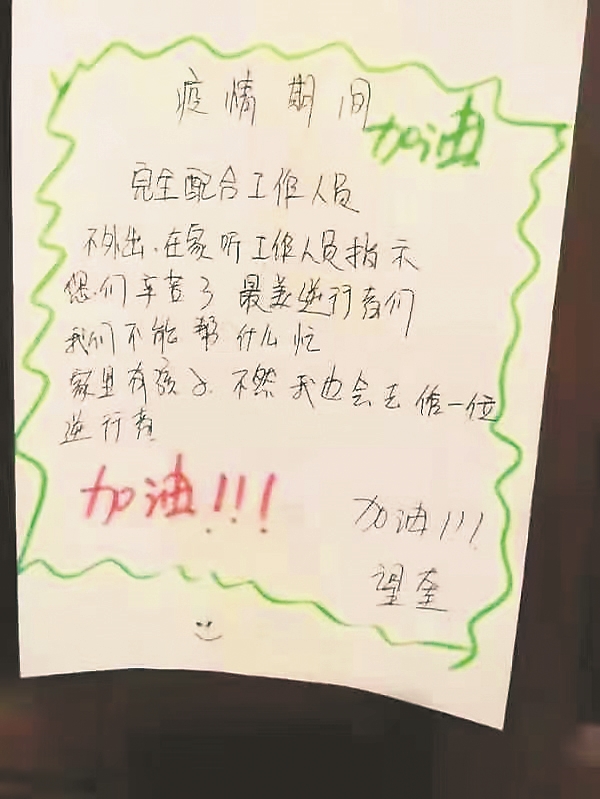 疫情期间
加油
完全配合工作人员
不外出、在家听工作人员指示
您们辛苦了 最美逆行者们
我们不能帮什么忙
家里有孩子、不然我也会去做一位
逆行者
加油!!!
加油!!!
望奎